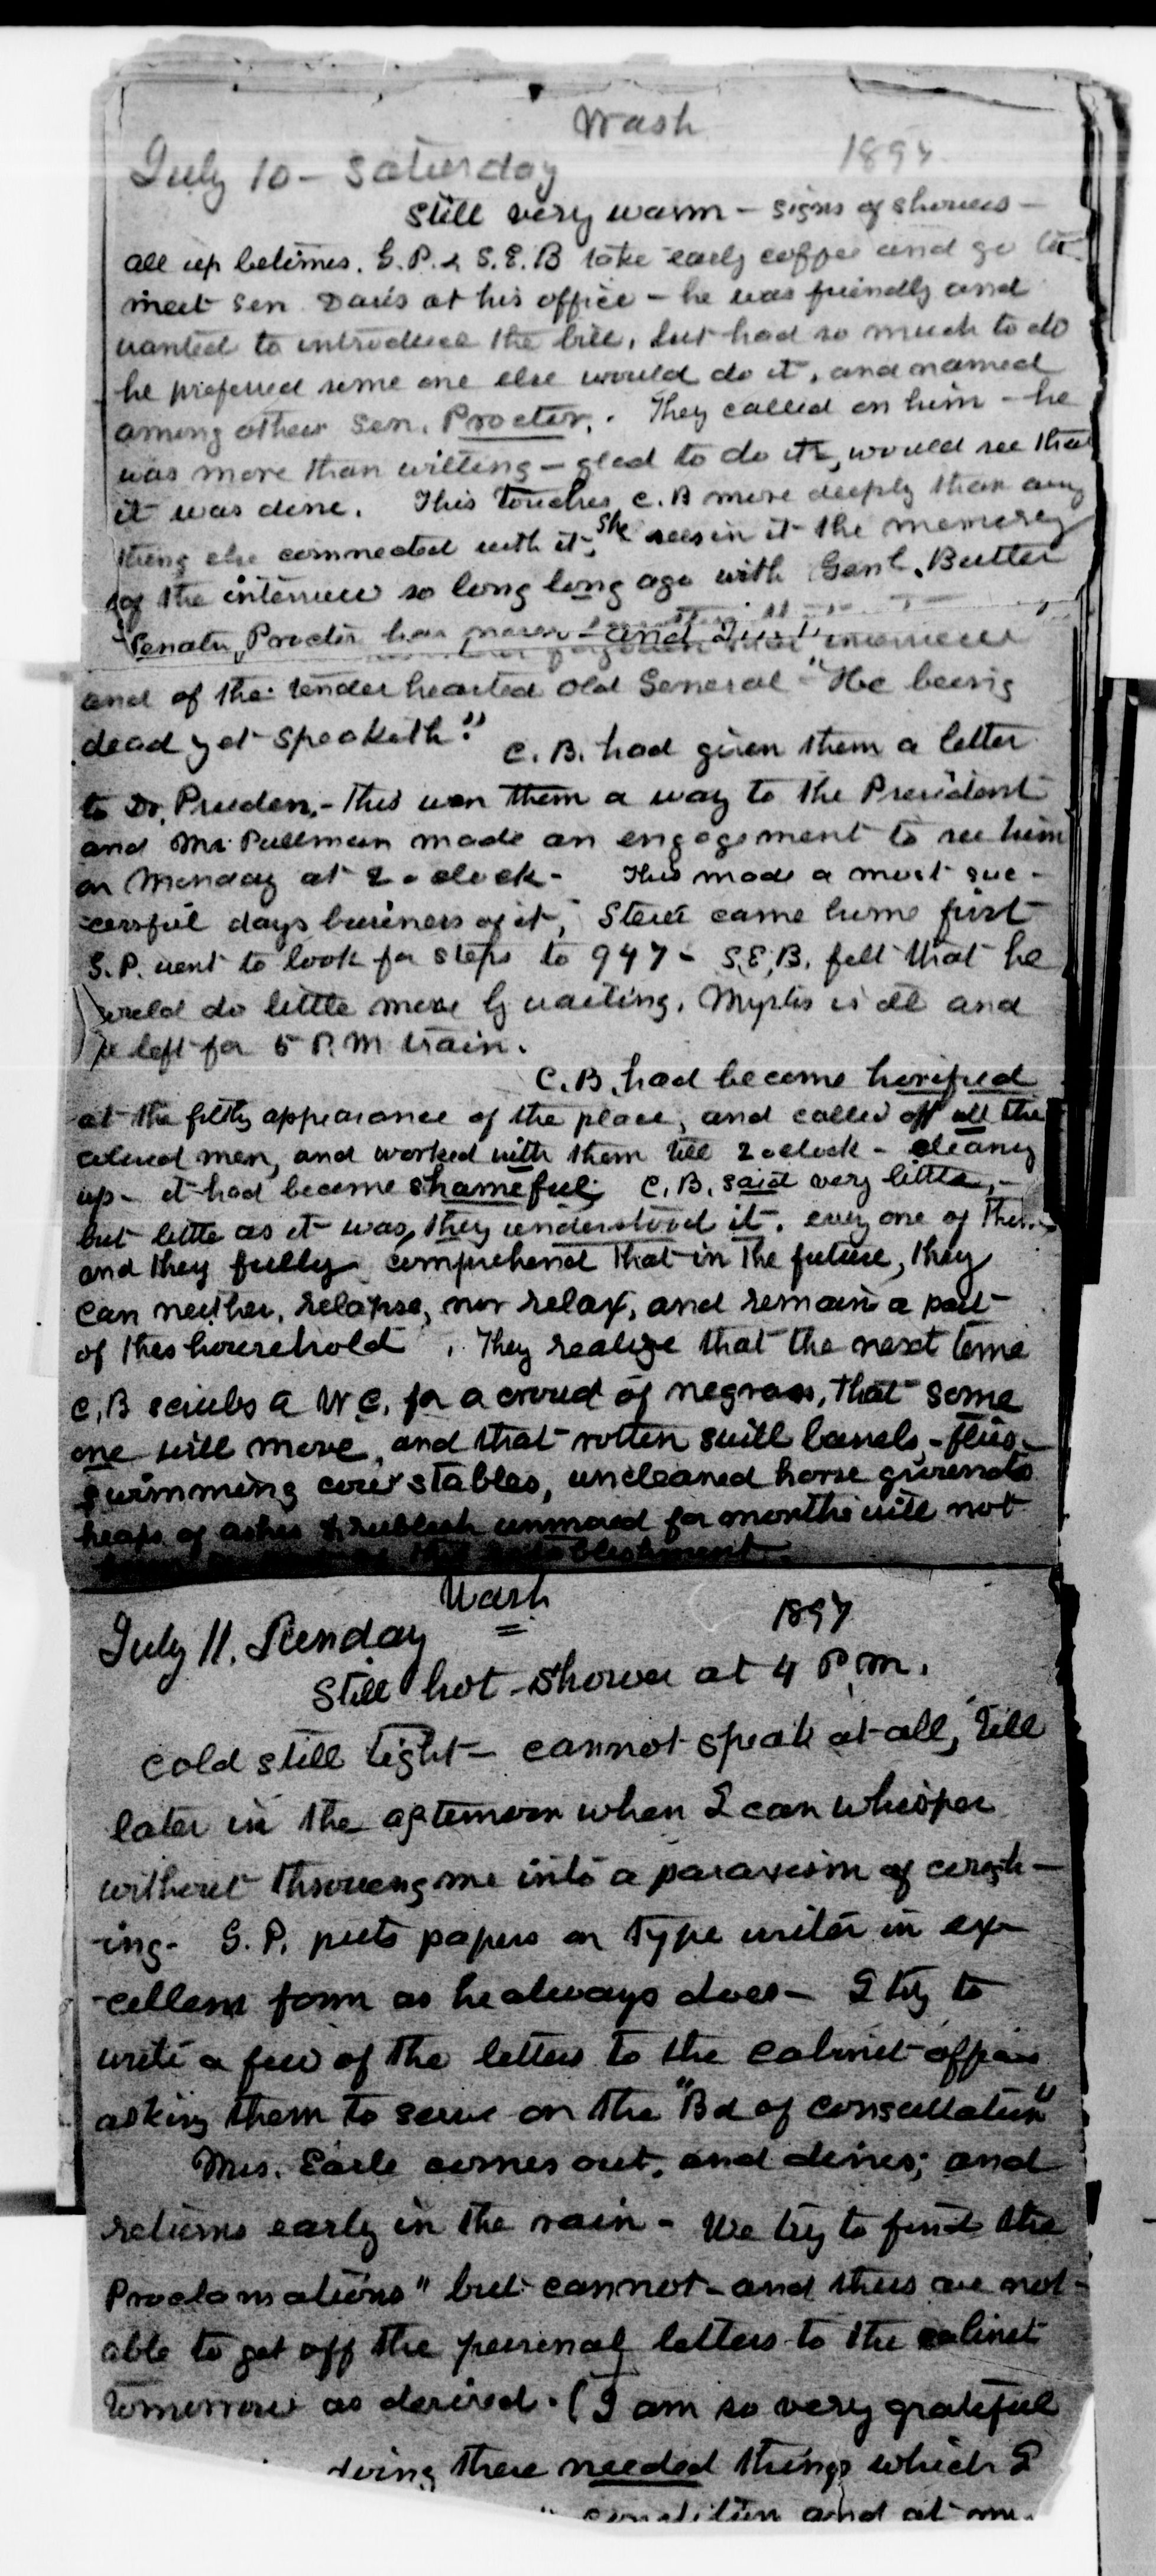 Wash
July 10 - Saturday 1897
Still very warm - signs of showers -
all up betimes. G.P. & S.E.B take early coffee and go to
meet Sen. Davis at his office - he was friendly and
wanted to introduce the bill, but had so much to do
he preferred some one else would do it, and named
among others Sen. Procter. They called on him - he
was more than willing - glad to do it, would see that
it was done. This touches C.B more deeply than any
thing else connected with it, She sees in it the memory
of the interview so long long ago with Genl. Butler
"Senator Procter has never
and of the tender hearted old General - "He being
dead yet speaketh."
C.B. had given them a letter
to Dr. Pruden, - this won them a way to the President
and Mr. Pullman made an engagement to see him
on Monday at 2 o clock - This made a most suc-
cessful days business of it, Steve came home first
G.P. went to look for steps to 947 - S.E.B. felt that he
could do little more by waiting. Myrtis is ill and
he left for 5 P.M train.
C.B. had become horified
at the filthy appearance of the place, and called off all the
colored men, and worked with them till 2 oclock - cleaning
up - it had become shameful; C.B. said very little, -
but little as it was, they understood it. every one of them
and they fully comprehend that in the future, they
can neither, relapse, nor relax, and remain a part
of this household. They realize that the next time
C.B scrubs a W.C. for a croud of negroes, that some
one will move, and that rotten swill barrels, - flies
swimming cow stables, uncleaned horse grounds
heaps of ashes & rubbish unmoved for months will not
establishment
Wash
July 11. Sunday 1897
Still hot - Shower at 4 P.m.
Cold still tight - cannot speak at all, till
later in the afternoon when I can whisper
without throwing me into a paroxism of cough-
-ing - G.P. puts papers on type writer in ex-
-cellent form as he always does - I try to
write a few of the letters to the cabinet officers
asking them to serve on the "Bd of consultation"
Mrs. Earle comes out, and dines; and
returns early in the rain - We try to find the
Proclamations" but cannot - and thus are not
able to get off the personal letters to the cabinet
tomorrow as desired. (I am so very grateful
doing these needed things which I
condition and at